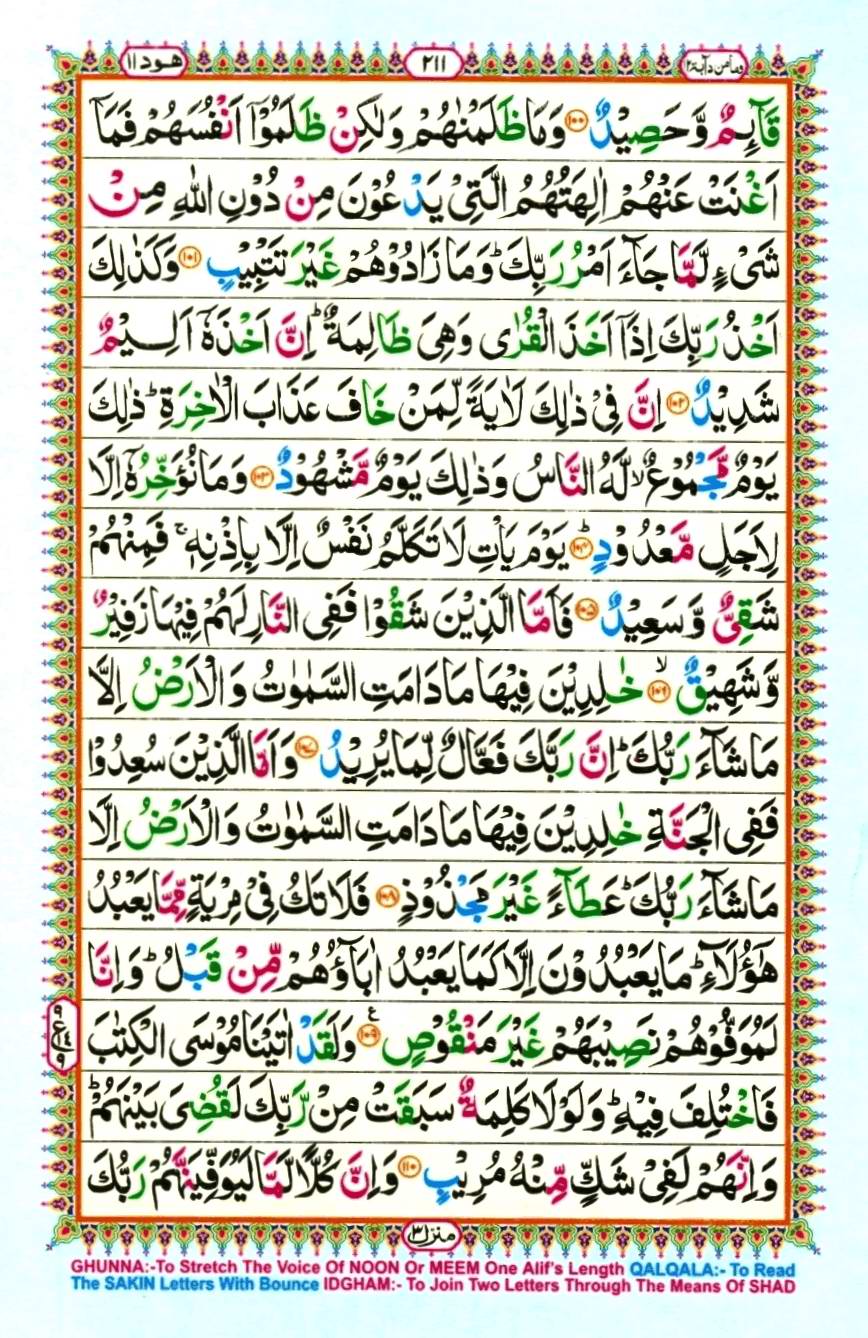 هود ١١
٢١١
ومامن دآبة ١٢
قَآئِمٌ وَّحَصِيْدٌ ۝١٠٠ وَمَا ظَلَمْنٰهُمْ وَلٰكِنْ ظَلَمُوْٓا اَنْفُسَهُمْ فَمَآ
اَغْنَتْ عَنْهُمْ اٰلِهَتُهُمُ الَّتِيْ يَدْعُوْنَ مِنْ دُوْنِ اللّٰهِ مِنْ
شَيْءٍ لَّمَّا جَآءَ اَمْرُ رَبِّكَ ؕ وَمَا زَادُوْهُمْ غَيْرَ تَتْبِيْبٍ ۝١٠١ وَكَذٰلِكَ
اَخْذُ رَبِّكَ اِذَآ اَخَذَ الْقُرٰى وَهِيَ ظَالِمَةٌ ؕ اِنَّ اَخْذَهٗٓ اَلِيْمٌ
شَدِيْدٌ ۝١٠٢ اِنَّ فِيْ ذٰلِكَ لَاٰيَةً لِّمَنْ خَافَ عَذَابَ الْاٰخِرَةِ ؕ ذٰلِكَ
يَوْمٌ مَّجْمُوْعٌ ۙ لَّهُ النَّاسُ وَذٰلِكَ يَوْمٌ مَّشْهُوْدٌ ۝١٠٣ وَمَا نُؤَخِّرُهٗٓ اِلَّا
لِاَجَلٍ مَّعْدُوْدٍ ؕ ۝١٠٤ يَوْمَ يَاْتِ لَا تَكَلَّمُ نَفْسٌ اِلَّا بِاِذْنِهٖ ۚ فَمِنْهُمْ
شَقِيٌّ وَّسَعِيْدٌ ۝١٠٥ فَاَمَّا الَّذِيْنَ شَقُوْا فَفِي النَّارِ لَهُمْ فِيْهَا زَفِيْرٌ
وَّشَهِيْقٌ ۙ ۝١٠٦ خٰلِدِيْنَ فِيْهَا مَا دَامَتِ السَّمٰوٰتُ وَالْاَرْضُ اِلَّا
مَا شَآءَ رَبُّكَ ؕ اِنَّ رَبَّكَ فَعَّالٌ لِّمَا يُرِيْدُ ۝١٠٧ وَاَمَّا الَّذِيْنَ سُعِدُوْا
فَفِي الْجَنَّةِ خٰلِدِيْنَ فِيْهَا مَا دَامَتِ السَّمٰوٰتُ وَالْاَرْضُ اِلَّا
مَا شَآءَ رَبُّكَ ؕ عَطَآءً غَيْرَ مَجْذُوْذٍ ۝١٠٨ فَلَا تَكُ فِيْ مِرْيَةٍ مِّمَّا يَعْبُدُ
هٰٓؤُلَآءِ ؕ مَا يَعْبُدُوْنَ اِلَّا كَمَا يَعْبُدُ اٰبَآؤُهُمْ مِّنْ قَبْلُ ؕ وَاِنَّا
لَمُوَفُّوْهُمْ نَصِيْبَهُمْ غَيْرَ مَنْقُوْصٍ ۝١٠٩ ع وَلَقَدْ اٰتَيْنَا مُوْسَى الْكِتٰبَ
فَاخْتُلِفَ فِيْهِ ؕ وَلَوْلَا كَلِمَةٌ سَبَقَتْ مِنْ رَّبِّكَ لَقُضِيَ بَيْنَهُمْ ؕ
وَاِنَّهُمْ لَفِيْ شَكٍّ مِّنْهُ مُرِيْبٍ ۝١١٠ وَاِنَّ كُلًّا لَّمَّا لَيُوَفِّيَنَّهُمْ رَبُّكَ
منزل ٣
GHUNNA:-To Stretch The Voice Of NOON Or MEEM One Alif's Length QALQALA:- To Read
The SAKIN Letters With Bounce IDGHAM:- To Join Two Letters Through The Means Of SHAD